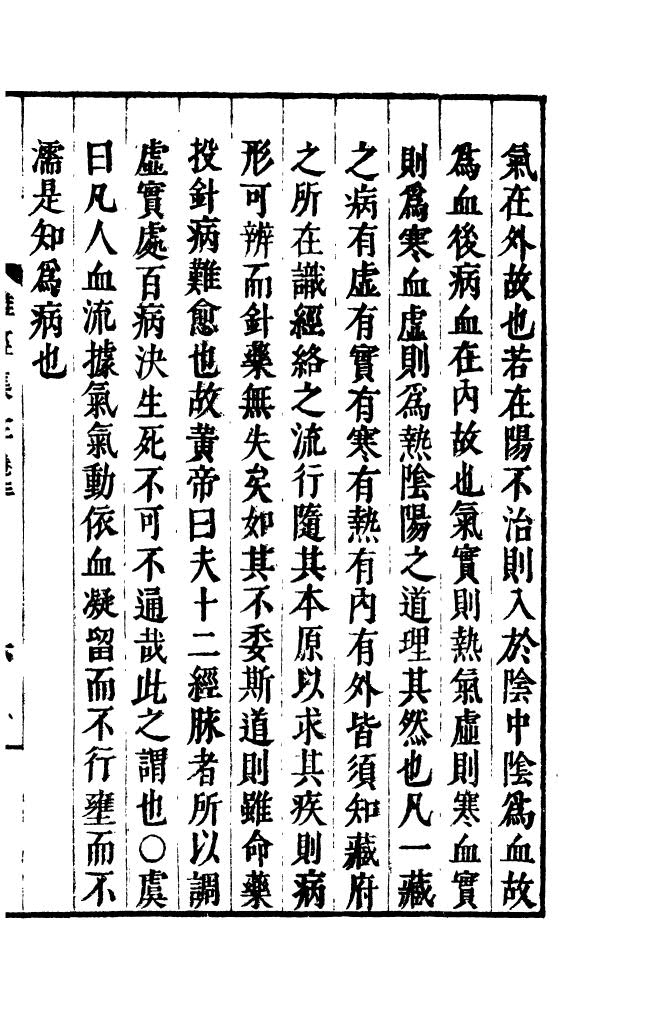 氣在外故也若在陽不治則入於陰中陰爲血故
爲血後病血在內故也氣實則熱氣虛則寒血實
則爲寒血虛則爲熱陰陽之道理其然也凡一藏
之病有虛有實有寒有熱有內有外皆須知藏府
之所在識經絡之流行隨其本原以求其疾則病
形可辨而針藥無失矣如其不委斯道則雖命藥
投針病難愈也故黃帝曰夫十二經脉者所以調
虛實處百病決生死不可不通哉此之謂也○虞
曰凡人血流據氣氣動依血凝留而不行壅而不
濡是知爲病也
難經集注卷三
六